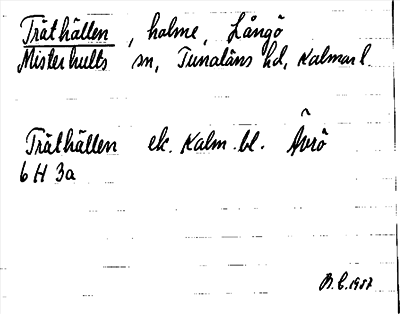 Träthällen, holme, Långö
Misterhults sn, Tunaläns hd, Kalmar l.
Träthällen ek. Kalm. bl. Ävrö
6 H 3a
B. E. 1957